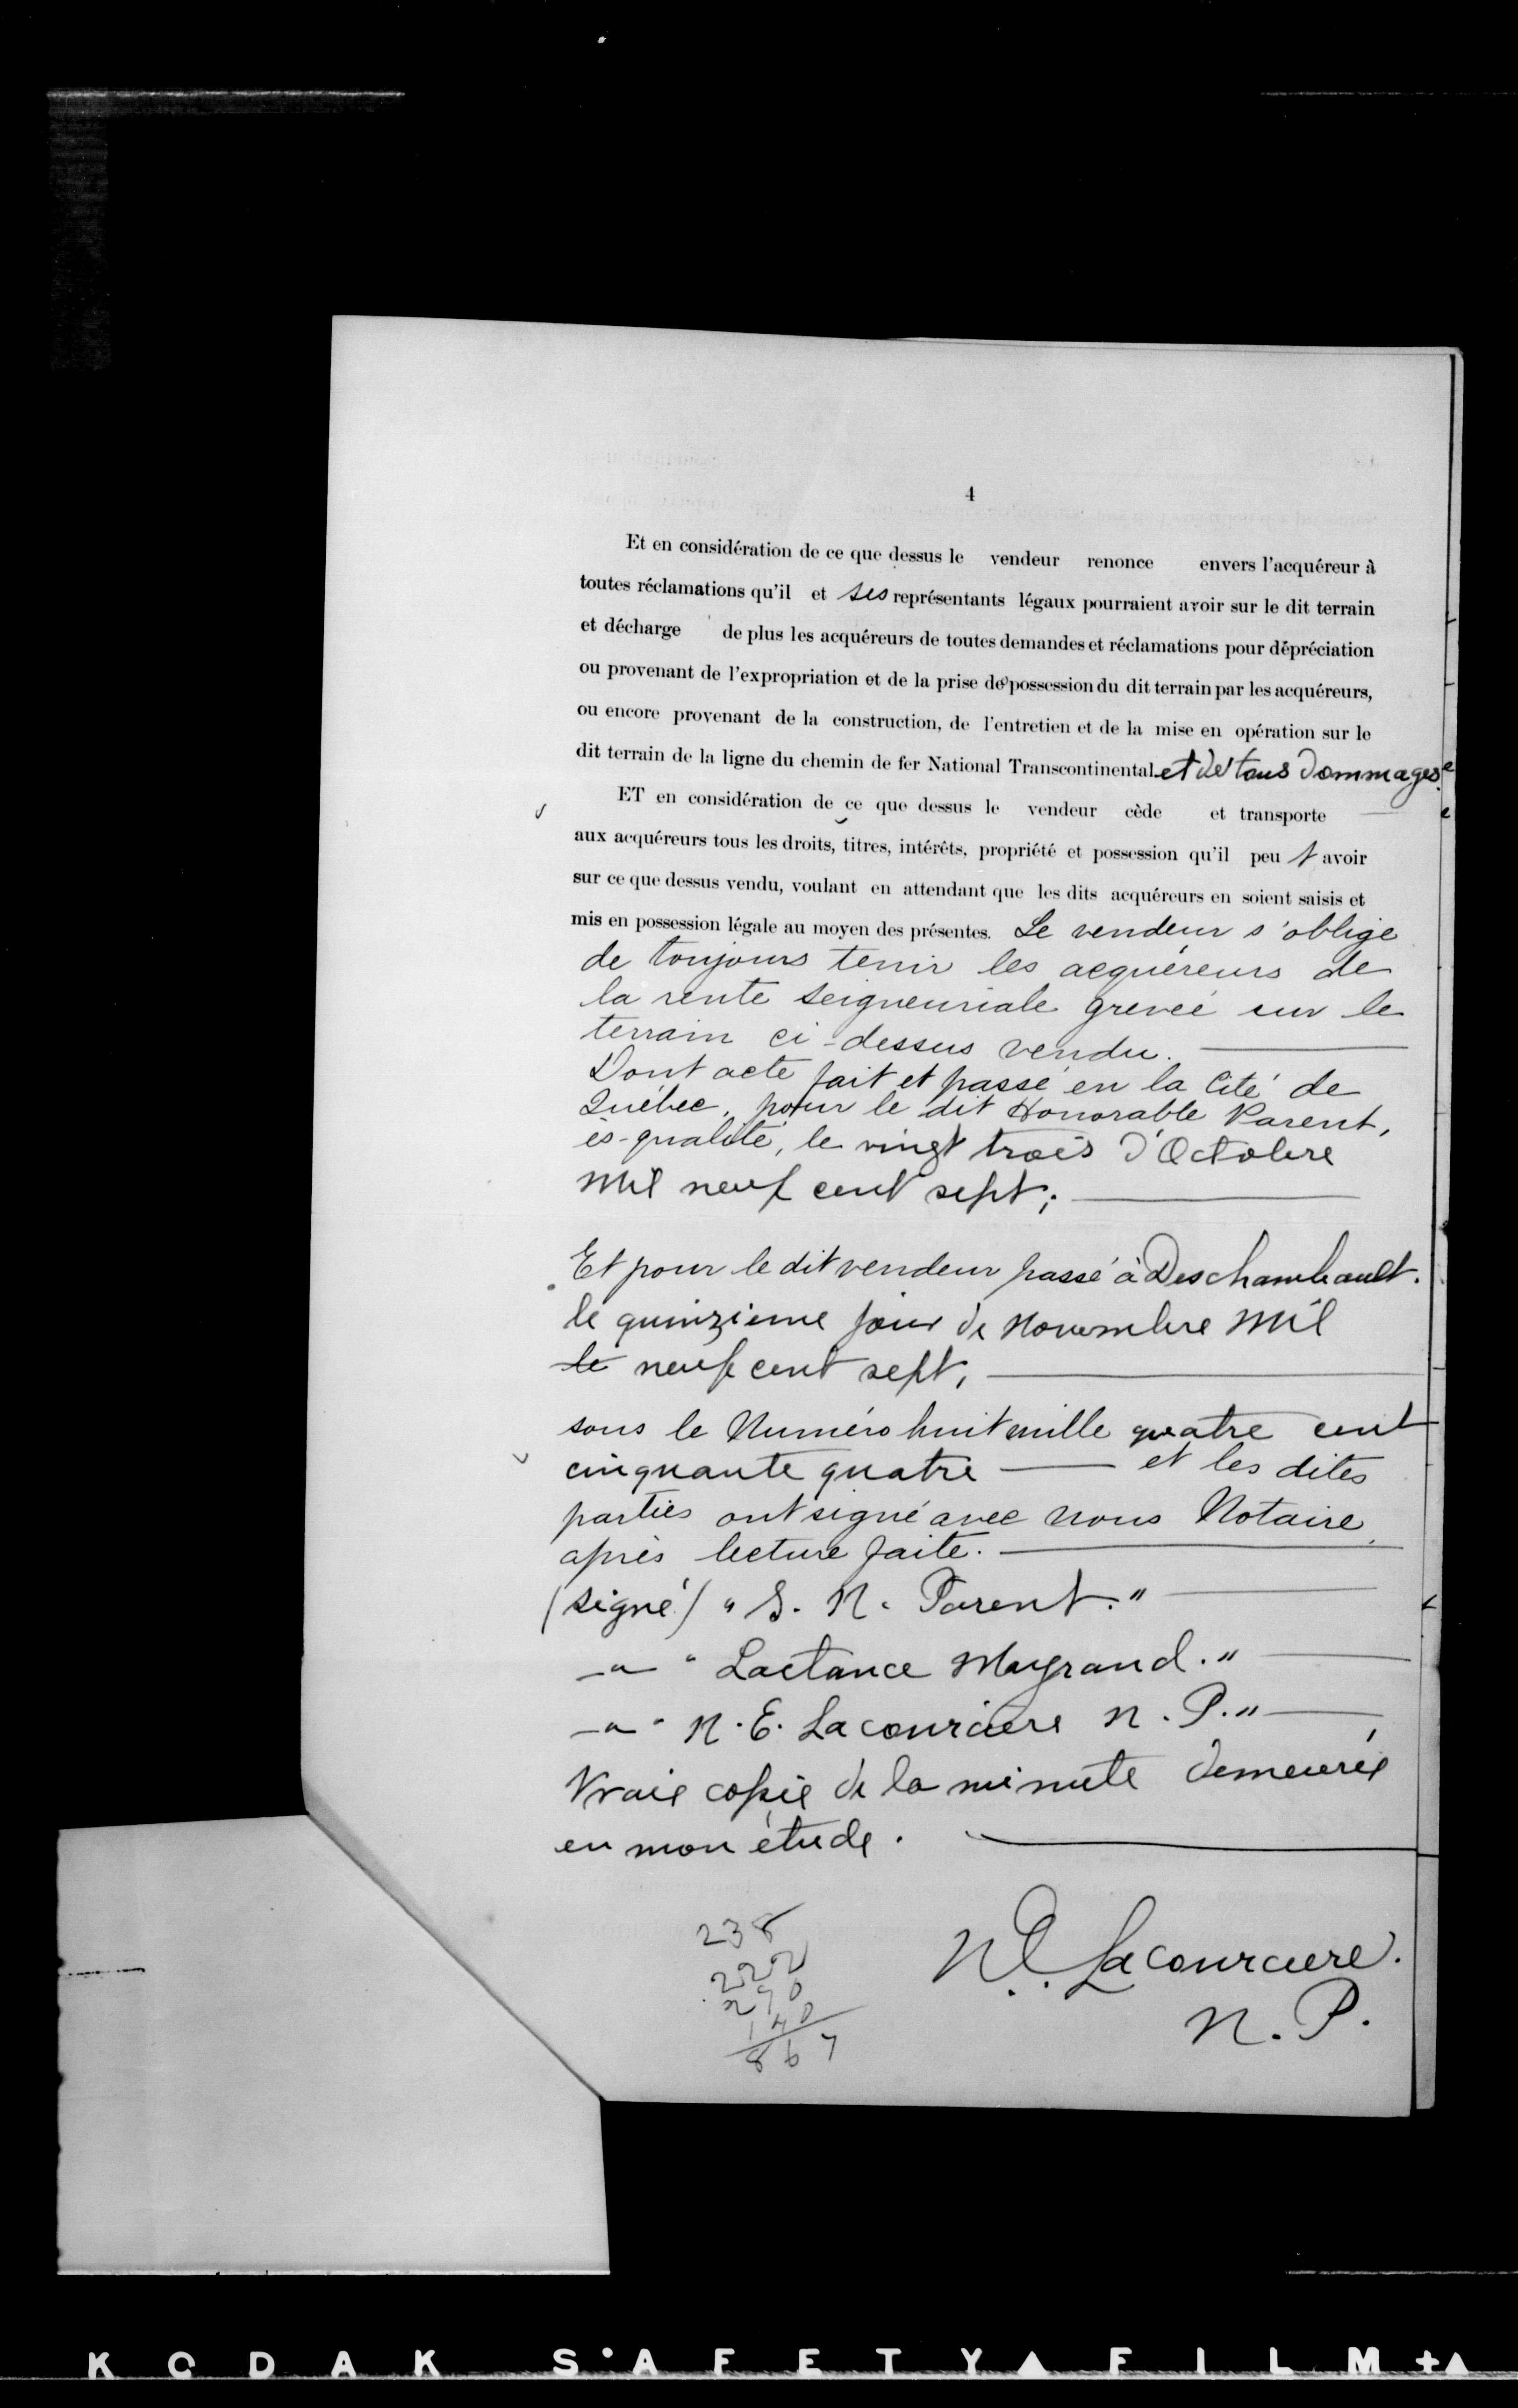 4
Et en considération de ce que dessus le vendeur renonce envers l'acquéreur à
toutes réclamations qu'il et ses représentants légaux pourraient avoir sur le dit terrain
et décharge de plus les acquéreurs de toutes demandes et réclamations pour dépréciation
ou provenant de l'expropriation et de la prise de possession du dit terrain par les acquéreurs,
ou encore provenant de la construction, de l'entretien et de la mise en opération sur le
dit terrain de la ligne du chemin de fer National Transcontinental et de tous dommages.
ET en considération de ce que dessus le vendeur cède et transporte
aux acquéreurs tous les droits, titres, intérêts, propriété et possession qu'il peut avoir
sur ce que dessus vendu, voulant en attendant que les dits acquéreurs en soient saisis et
mis en possession légale au moyen des présentes. Le vendeur s'oblige
de toujours tenir les acquéreurs de
la rente seigneuriale greveé sur le
terrain ci-dessus vendu.
Dont acte fait et passé en la Cité de
Québec, pour le dit Honorable Parent,
ès-qualité, le vingt trois d'Octobre
mil neuf cent sept;
Et pour le dit vendeur passé à Deschambault.
le quinzieme jour de Novembre mil
le neuf cent sept,
sous le Numéro huit mille quatre cent
cinquante quatre et les dites
parties ont signé avec nous Notaire,
après lecture faite.
(signé) "S. N. Parent."
" " Lactance Mayrand."
" " N. E. Lacourciere N. P."
Vraie copie de la minute demeurée
en mon étude.
238
222
270
140
867
N. E. Lacourciere.
N. P.
KODAK SAFETY FILM